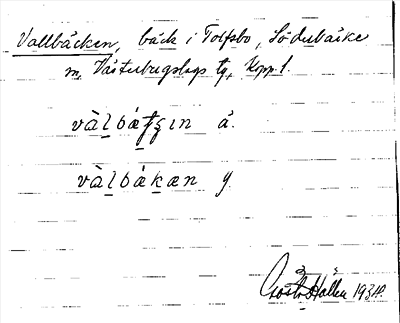 Vallbäcken, bäck i Tolfsbo, Söderbärke
m, Västerbergslags tg, Kopp. l.
vàlbátʂın ä.
vàlbákæn y.
Gösta Hallén 1934.